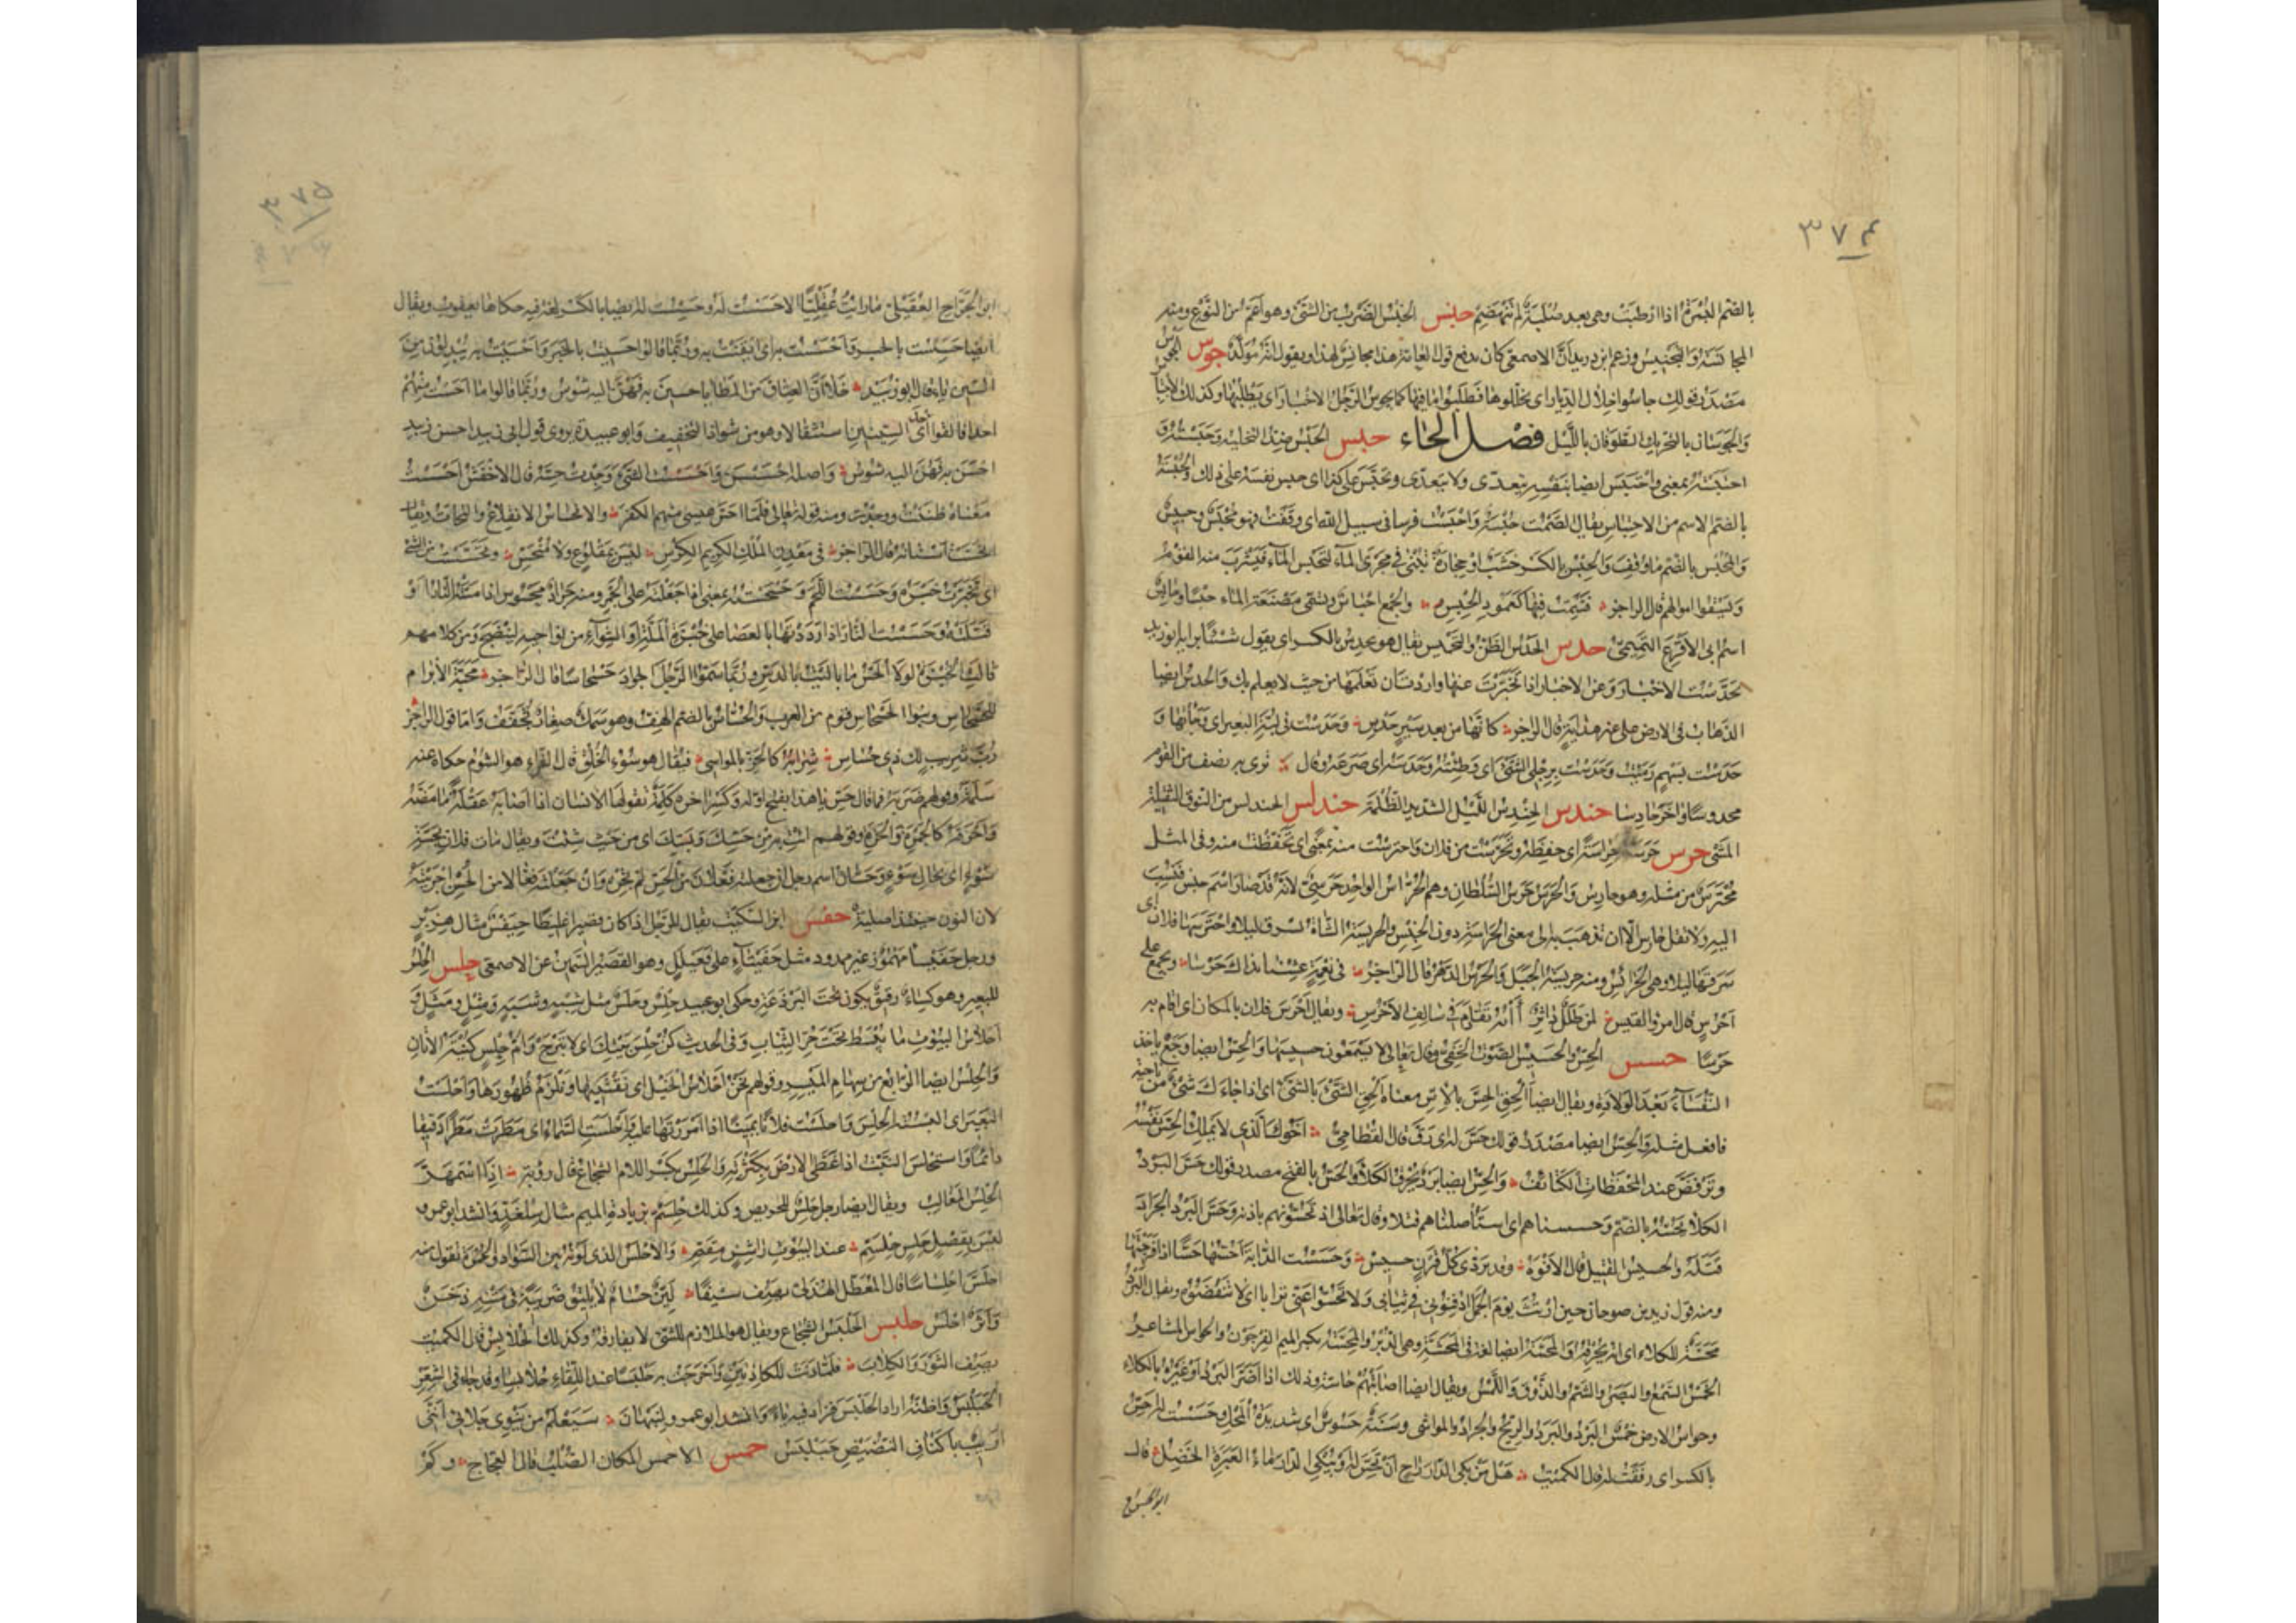 ٣٧٤
بالضم البُسرة اذا ارطبت وهي بعد صُلبة لم تنهضم جنس الجنس الضرب من الشئ وهو اعم من النوع ومنه
المجانسة والتجنيس وزعم ابن دريد ان الاصمعي كان يدفع قول العامة هذا مجانس لهذا ويقول انه مولد جوس الجوس
مصدر قولك جاسوا خلال الديار اى تخللوها فطلبوا ما فيها كما يجوس الرجل الاخبار اى يطلبها وكذلك الاجتياس
والجوسان بالتحريك الطوفان بالليل فصل الحاء حبس الحبس ضد التخلية وحبسته و
احتبسته بمعنى واحتبس ايضا بنفسه يتعدى ولا يتعدى وتحبّس على كذا اى حبس نفسه على ذلك والحبسة
بالضم الاسم من الاحتباس يقال الصمت حبسة واحبست فرسا فى سبيل الله اى وقفت فهو محبس وحبيس
والحُبس بالضم ما وقف والحِبس بالكسر خشب او حجارة تبنى في مجرى الماء لتحبس الماء فيشرب منه القوم
ويسقوا اموالهم قال الراجز فشمت فيها كعمود الحبس والجمع احباس وتسمى مصنعة الماء حبسا وحابس
اسم ابى الاقرع التميمي حدس الحدس الظن والتخمين يقال هو يحدس بالكسر اى يقول شيئا برأيه ابو زيد
تحدست الاخبار وعن الاخبار اذا تخبرت عنها واردت ان تعلمها من حيث لا يعلم بك والحدس ايضا
الذهاب فى الارض على غير هداية قال الراجز كانها من بعد سير حدس وحدست فى لبة البعير اى وجأتها و
حدست بسهم رميت وحدست برجلى الشئ اى وطئته وحدسه اى صرعه وقال ترى به نصف من القوم
محدوسا واخر حادسا حندس الحندس الليل الشديد الظلمة حندلس الحندلس من النوق الثقيلة
المشى حرس حرسه حراسة اى حفظه وتحرست من فلان واحترست منه بمعنى اى تحفظت منه وفى المثل
محترس من مثله وهو حارس والحرس حرس السلطان وهم الحراس الواحد حرسي لانه قد صار اسم جنس فنسب
اليه ولا تقل حارس الا ان تذهب به الى معنى الحراسة دون الجنس والحريسة الشاة تسرق ليلا واحترسها فلان اى
سرقها ليلا وهى الحرائس ومنه حريسة الجبل والحرس الدهر قال الراجز فى نعمة عشنا بذاك حرسا ويجمع على
احرس قال امرؤ القيس لمن طلل داثر آيه تقادم فى سالف الاحرس ويقال احرس فلان بالمكان اى اقام به
حرسا حسس الحس والحسيس الصوت الخفي وقال تعالى لا يسمعون حسيسها والحس ايضا وجع ياخذ
النفساء بعد الولادة ويقال ايضا الحق الحس بالاس معناه الحق الشئ بالشئ اى اذا جاءك شئ من ناحية
فافعل مثله والحس ايضا مصدر قولك حس له اى رق قال القطامي اخوك الذى لا يملك الحس نفسه
وترفض عند المحفظات الكتائف والحس ايضا برد يحرق الكلأ والحس بالفتح مصدر قولك حس البرد
الكلأ يحسه بالضم وحسسناهم اى استأصلناهم قتلا وقال تعالى اذ تحسونهم باذنه وحس البرد الجراد
قتله والحسيس القتيل قال الافوه وقد بردى كل قرن حسيس وحسست الدابة احسها حسا اذا فرجنتها
ومنه قول زيد بن صوحان حين ارتث يوم الجمل ادفنونى فى ثيابى ولا تحسوا عنى ترابا اى لا تنفضوه ويقال البرد
محسة للكلاء اى انه يحرقه والمحسة ايضا لغة فى المحشة وهى الدبر والمحسة بكسر الميم الفرجون والحواس المشاعر
الخمس السمع والبصر والشم والذوق واللمس ويقال ايضا اصابتهم حاسة وذلك اذا اضر البرد او غيره بالكلاء
وحواس الارض خمس البرد والبرد والريح والجراد والمواشى وسنة حسوس اى شديدة المحل وحسست له احس
بالكسر اى رققت له قال الكميت هل من بكى الدار راج ان تحس له او يبكى الدار ماء العبرة الخضل قال
ابو الجراح
٣٧٥
ابو الجراح العقيلى ما رأيت عقيليا الا حسست له وحسست له ايضا بالكسر لغة فيه حكاها يعقوب ويقال
ايضا حسست بالخبر واحسست به اى ايقنت به وربما قالوا حسيت بالخبر واحسيت به يبدلون من
السين ياء قال ابو زبيد خلا ان العتاق من المطايا حسين به فهن اليه شوس وربما قالوا ما احست منهم
احدا فالقوا احدى السينين استثقالا وهو من شواذ التخفيف وابو عبيدة يروى قول ابى زبيد احسن زبيد
احسن به فهن اليه شوس واصله احسسن واحسست الشئ وجدت حسه قال الاخفش احسست
معناه ظننت ووجدت ومنه قوله تعالى فلما احس عيسى منهم الكفر والانحساس الانقلاع والتحات ويقال
انحست اسنانه قال الراجز فى معدن الملك الكريم الكرس ليس بمقلوع ولا منحس وتحسست من الشئ
اى تخبرت خبره وحسست اللحم وحسحسته بمعنى اذا جعلته على الجمر ومنه جراد محسوس اذا مسته النار او
قتلته وحسست النار اذا رددتها بالعصا على خبزة الملة او الشواء من نواحيه لينضج ومن كلامهم
قالت الخبزة لولا الحس ما باليت بالدس وربما سموا الرجل الجواد حسحاسا قال الراجز محبة الابرام
للحسحاس وبنوا الحسحاس قوم من العرب والحساس بالضم الهف وهو سمك صغار يجفف واما قول الراجز
رب شريب لك ذى حساس شرابه كالحز بالمواسى فيقال هو سوء الخلق قال الفراء هو الشوم حكاه عنه
سلمة وقولهم ضربه فما قال حس يا هذا بفتح اوله وكسر اخره كلمة يقولها الانسان اذا اصابه غفلة ما مضه
واحرقه كالجمرة والحزة وقولهم ائت به من حسك وبسك اى من حيث شئت ويقال بات فلان بحسة
سوء اى بحال سوء وحسان اسم رجل ان جعلته فعلان من الحس لم تجره وان جعلته فعالا من الحسن اجريته
لان النون حينئذ اصلية حفس ابن السكيت يقال للرجل اذا كان قصيرا غليظا حيفس مثال هزبر
ورجل حفيسأ مهموز غير ممدود مثل حفيتأ على فعيلل وهو القصير السمين عن الاصمعى حلس الحلس
للبعير وهو كساء رقيق يكون تحت البرذعة وحكى ابو عبيد حلس وحلس مثل شبه وشبه ومثل ومثل و
احلاس البيوت ما يبسط تحت حر الثياب وفى الحديث كن حلس بيتك اى لا تبرح وام حلس كنية الاتان
والحلس ايضا الرابع من سهام الميسر وقولهم نحن احلاس الخيل اى نقتنيها ونلزم ظهورها واحلست
البعير اى البسته الحلس واحلست فلانا يمينا اذا امررتها عليه واحلست السماء اى مطرت مطرا دقيقا
دائما واستحلس النبت اذا غطى الارض بكثرته والحلس بكسر اللام الشجاع قال رؤبة اذا اسمهر
الحلس المغالب ويقال ايضا رجل حلس للحريص وكذلك حلسم بزيادة الميم مثال سلغد وانشد ابو عمرو
ليس بقصل حلس حلسم عند البيوت راشن مقم والاحلس الذى لونه بين السواد والحمرة تقول منه
احلس احلساسا قال المعطل الهذلى يصف سيفا لين حسام لا يليق ضريبة فى متنه دخن
واثر احلس حلبس الحلبس الشجاع ويقال هو الملازم للشئ لا يفارقه وكذلك الحلابس قال الكميت
يصف الثور والكلاب فلما دنت للكاذتين واحرجت به حلبسا عند اللقاء حلابسا وقد جاء فى الشعر
الحبلبس واظنه اراد الحلبس فزاد فيه باء وانشد ابو عمرو لنبهان سيعلم من ينوى جلائى اننى
اريب باكناف النضيض حبلبس حمس الاحمس المكان الصلب قال العجاج وكم